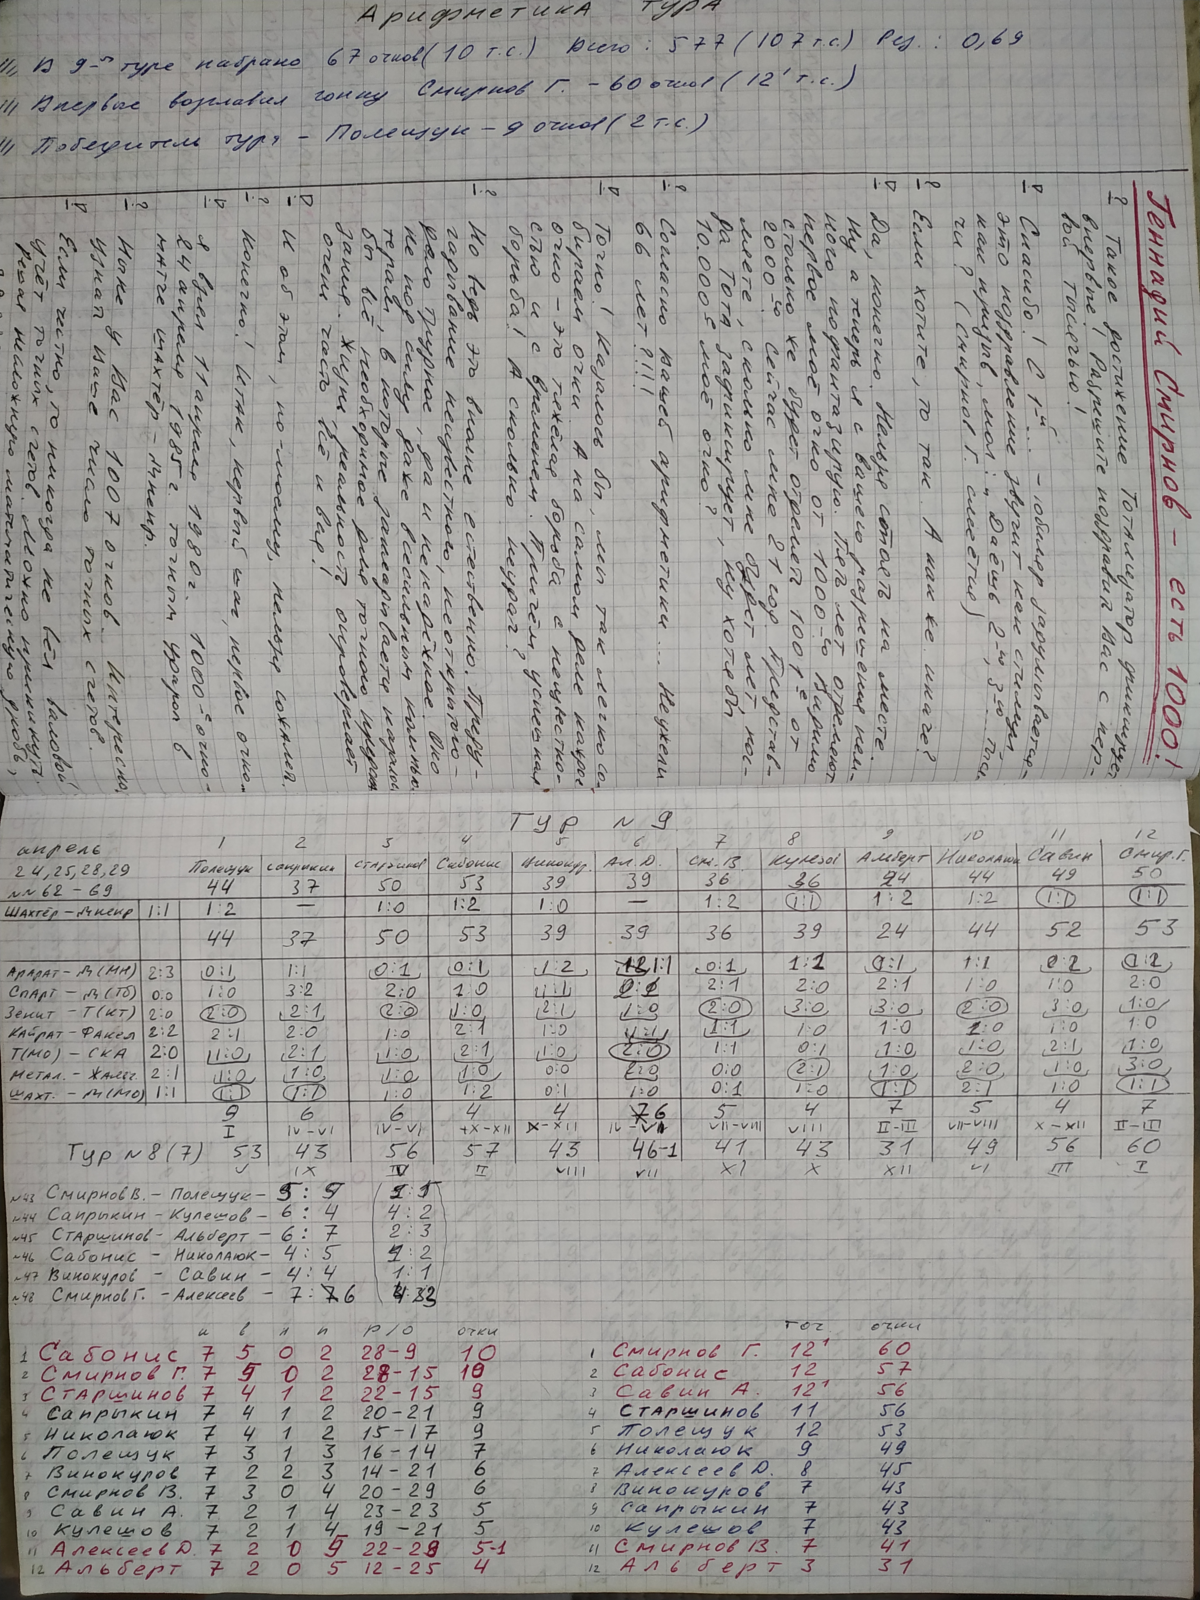 Арифметика тура
В 9-м туре набрано 67 очков (10 т.с.) Всего: 577 (107 т.с.) Рез.: 0,69
Впервые возглавил гонку Смирнов Г. - 60 очков (12' т.с.)
Победитель тура - Полещук - 9 очков (2 т.с.)
Геннадий Смирнов - есть 1000!
- Такое достижение Тотализатор фиксирует
впервые! Разрешите поздравить Вас с пер-
вой тысячью!
- Спасибо! С 1-й... - юбиляр задумывается -
это поздравление звучит как стимул,
как призыв, мол: "Даёшь 2-ю, 3-ю...
чи? (Смирнов Г. смеётся)
- Если хотите, то так. А как же иначе?
- Да, конечно. Нельзя стоять на месте.
Ну а теперь я с вашего разрешения нем-
ного пофантазирую. Пять лет отделяют
первое моё очко от 1000-го. Видимо
столько же будет отделять 1001-е от
2000-го. Сейчас мне 21 год. Представ-
ляете, сколько мне будет лет, ког-
да Тота зафиксирует, ну хотя бы
10.000-е моё очко?
- Согласно нашей арифметики... Неужели
66 лет?!!!
- Точно! Казалось бы, мы так легко со-
бираем очки. А на самом деле каждое
очко - это тяжёлая борьба с неизвестно-
стью и с временем. Причём, успешная
борьба! А сколько неудач?
- Но ведь это вполне естественно. Преду-
гадывание неизвестного, неоткрытого -
дело трудное, да и ненадёжное. Оно
не под силу даже всесильным компью-
терам, в которые закладывается казалось
бы всё необходимое для точного предска-
зания. Жизнь, реальность опровергает
очень часто всё и вся!
- И об этом, по-моему, нельзя сожалеть.
- Конечно! Итак, первый шаг, первое очко.
- Я взял 11 апреля 1980 г. 1000-е очко -
24 апреля 1985 г. точным ударом в
матче Шахтёр - Днепр.
- Ныне у Вас 1007 очков. Интересно
узнать Ваше число точных счетов.
- Если честно, то никогда не вёл валовой
учёт точных счетов. Можно прикинуть,
решая несложную математическую дробь,
ТУР №9
1 2 3 4 5 6 7 8 9 10 11 12
апрель
24,25,28,29 Полещук Сапрыкин Старшинов Сабонис Винокур. Ал.Д. См.В Кулешов Альберт Николаюк Савин Смир.Г.
№№62-69 44 37 50 53 39 39 36 36 24 44 49 50
Шахтёр-Днепр 1:1 1:2 — 1:0 1:2 1:0 — 1:2 1:1 1:2 1:2 1:1 1:1
44 37 50 53 39 39 36 39 24 44 52 53
Арарат-Д(МН) 2:3 0:1 1:1 0:1 0:1 1:2 1:1 0:1 1:2 0:1 1:1 0:2 1:2
Спарт-Д(Тб) 0:0 1:0 3:2 2:0 1:0 1:1 2:1 2:0 2:1 1:0 1:0 2:0
Зенит-Т(КТ) 2:0 2:0 2:1 2:0 1:0 2:1 1:0 2:0 3:0 3:0 2:0 3:0 1:0
Кайрат-Факел 2:2 2:1 2:0 1:0 2:1 1:0 1:1 1:1 1:0 1:0 1:0 1:0 1:0
Т(МО)-СКА 2:0 1:0 2:1 1:0 2:1 1:0 2:0 1:1 0:1 1:0 1:0 2:1 1:0
Метал.-Жальг. 2:1 1:0 1:0 1:0 1:0 0:0 2:0 0:0 2:1 1:0 2:0 1:0 3:0
Шахт.-Д(МО) 1:1 1:1 1:1 1:0 1:2 0:1 1:0 0:1 1:0 1:1 2:1 1:0 1:1
9 6 6 4 4 6 5 4 7 5 4 7
I IV-VI IV-VI IX-XII X-XII IV-VI VII-VIII VIII II-III VII-VIII X-XII II-III
Тур №8(7) 53 43 56 57 43 46-1 41 43 31 49 56 60
V IX IV II VIII VII XI X XII VI III I
№43 Смирнов В. - Полещук - 5:9 1:5
№44 Сапрыкин - Кулешов - 6:4 4:2
№45 Старшинов - Альберт - 6:7 2:3
№46 Сабонис - Николаюк - 4:5 1:2
№47 Винокуров - Савин - 4:4 1:1
№48 Смирнов Г. - Алексеев - 7:6 3
и в н п Р/О очки
1 Сабонис 7 5 0 2 28-9 10
2 Смирнов Г. 7 5 0 2 28-15 10
3 Старшинов 7 4 1 2 22-15 9
4 Сапрыкин 7 4 1 2 20-21 9
5 Николаюк 7 4 1 2 15-17 9
6 Полещук 7 3 1 3 16-14 7
7 Винокуров 7 2 2 3 14-21 6
8 Смирнов В. 7 3 0 4 20-29 6
9 Савин А. 7 2 1 4 23-23 5
10 Кулешов 7 2 1 4 19-21 5
11 Алексеев Д. 7 2 0 5 22-28 5-1
12 Альберт 7 2 0 5 12-25 4
точ. очки
1 Смирнов Г. 12' 60
2 Сабонис 12 57
3 Савин А. 12' 56
4 Старшинов 11 56
5 Полещук 12 53
6 Николаюк 9 49
7 Алексеев Д. 8 45
8 Винокуров 7 43
9 Сапрыкин 7 43
10 Кулешов 7 43
11 Смирнов В. 7 41
12 Альберт 3 31